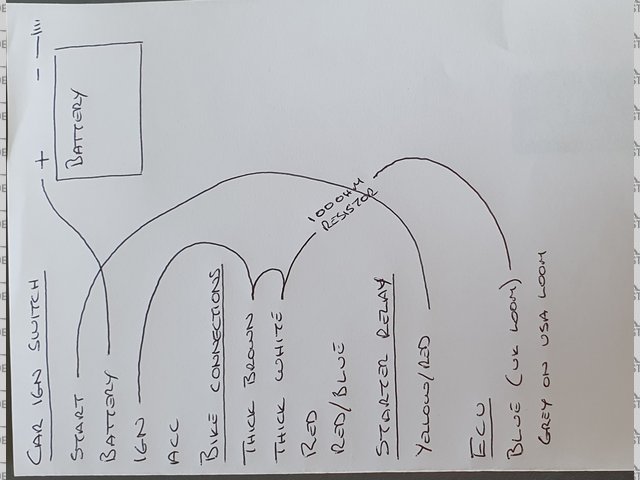 CAR IGN SWITCH
START
BATTERY
IGN
ACC
BIKE CONNECTIONS
THICK BROWN
THICK WHITE
RED
RED/BLUE
STARTER RELAY
YELLOW/RED
ECU
BLUE (UK LOOM)
GREY ON USA LOOM
+ -
BATTERY
100OHM
RESISTOR